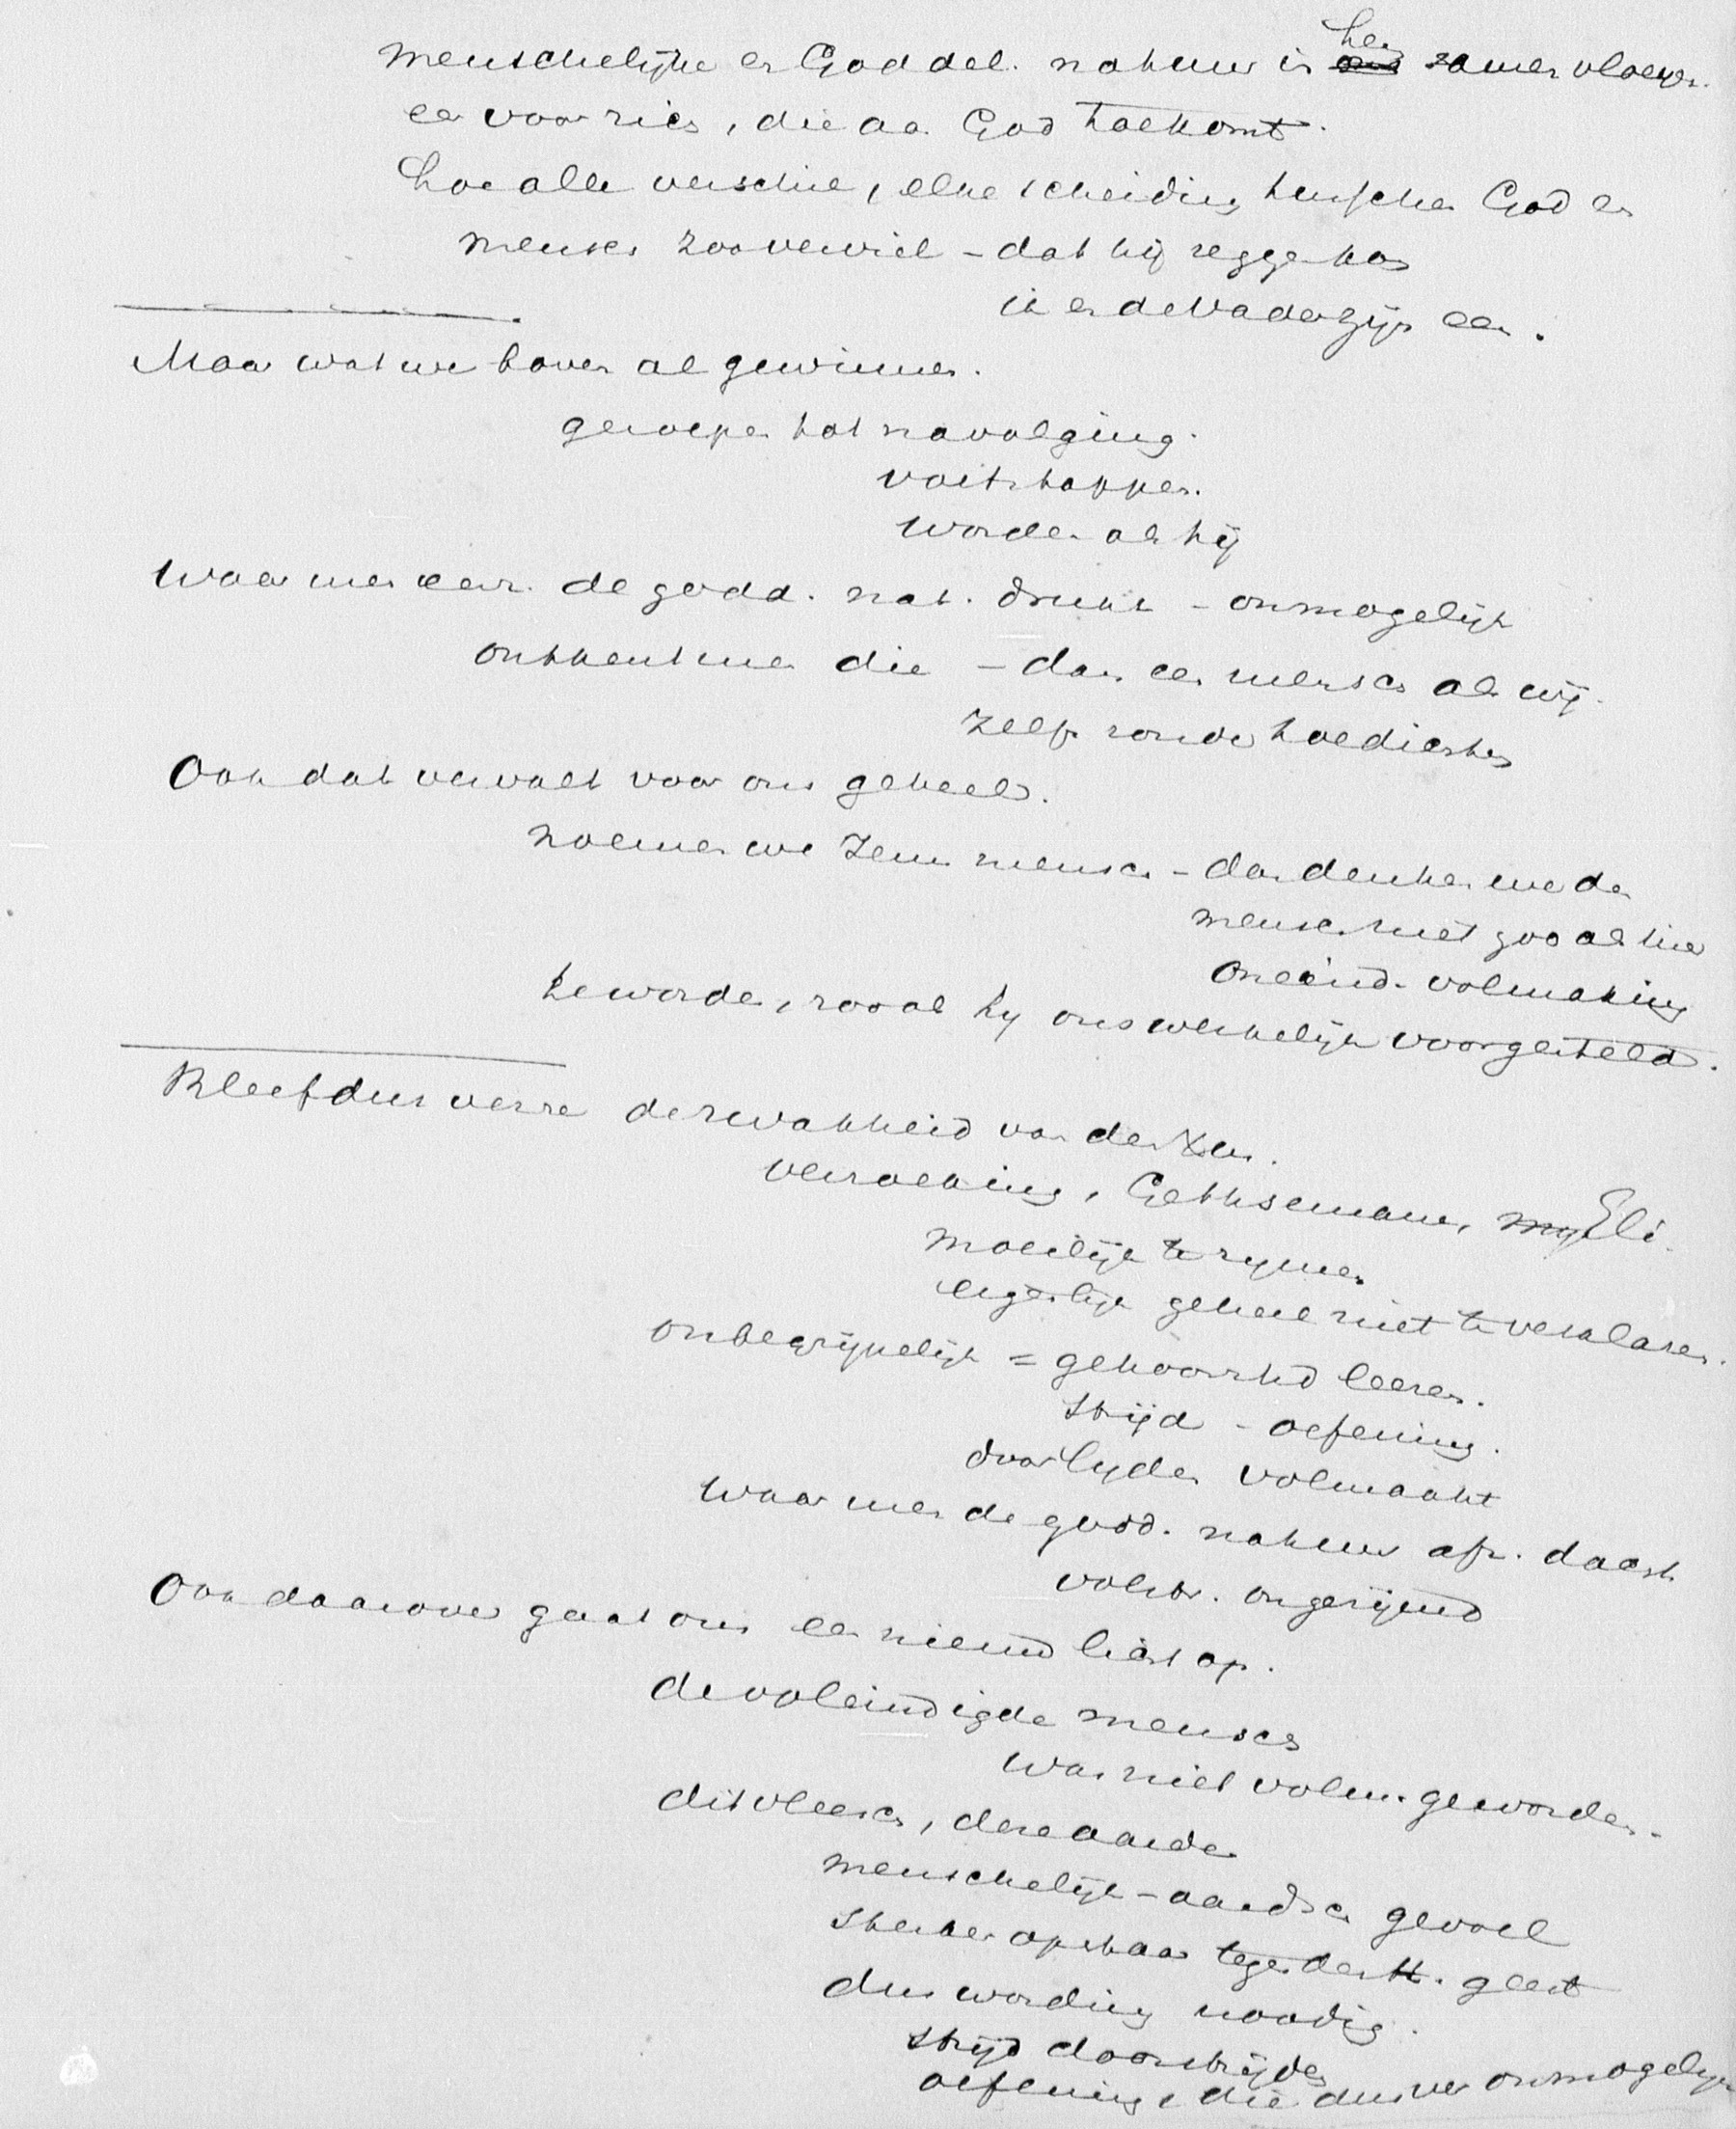 menschelijke en Goddel. natuur in hen zamenvloeijen.
een voorrecht, die aan God toekomt.
hoe alle verschil, elke scheiding tusschen God en
mensch zoo verviel - dat hij zeggen kon
ik en de Vader zijn een.
Maar wat we boven al gewinnen.
geroepen tot navolging.
voetstappen.
worden als hij
Waar men eenz. de godd. nat. drukt - onmogelijk
ontkent men die - dan een mensch als wij.
zelfs zonder
Ook dat vervalt voor ons geheel.
noemen we Jezus mensch - dan denken we den
mensch niet zoo als hier
oneind. volmaking
te worden, zoo als hij ons werkelijk voorgesteld.
Bleef dus verre de zwakheid van den Heer.
verzoeking, Gethsemane, Eli.
moeilijk te rijmen
eigenlijk geheel niet te verklaren.
onbegrijpelijk = gehoorzhd leeren.
strijd - oefening.
door lijden volmaakt
Waar men de godd. natuur afz. daarst.
volstr. ongerijmd
Ook daarover gaat ons een nieuw licht op.
de voleindigde mensch
was niet volm. geworden.
dit vleesch, deze aarde
menschelijk - aardsch gevoel
sterker opstaan tegen den H. geest
dus wording noodig.
strijd doorstrijden
oefening, die dus ver onmogelijk